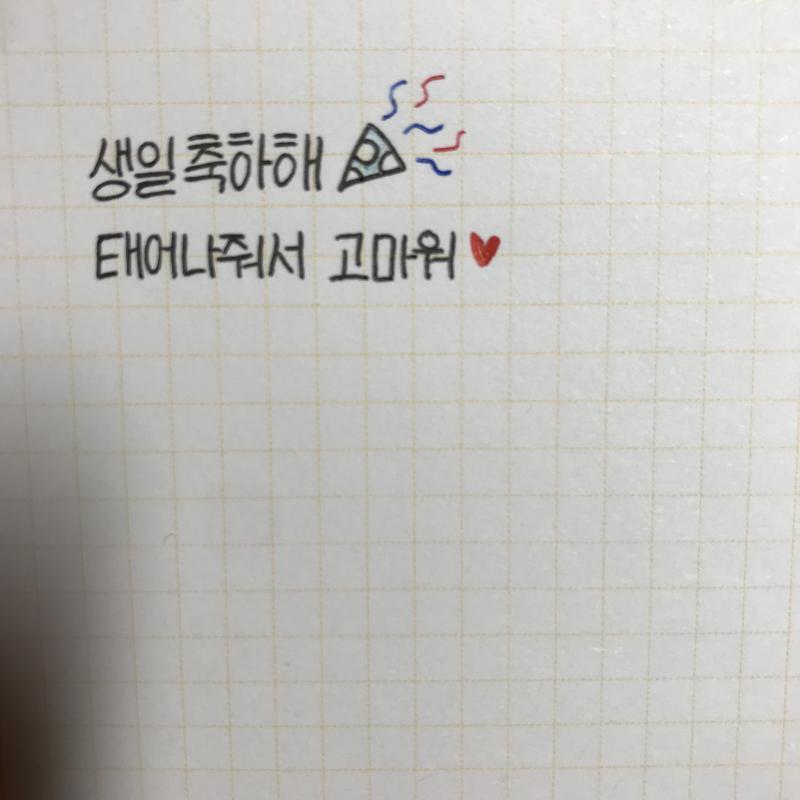 생일축하해
태어나줘서 고마워